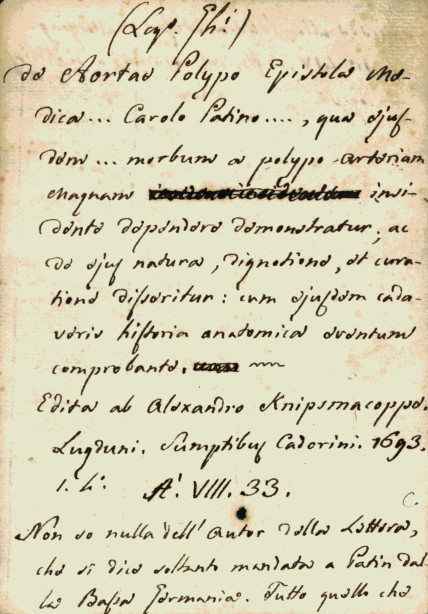 de Aortae Polypo Epistola Me-
dica... Carolo Patino...., qua ejus-
dem... morbum a polypo arteriam
Magnam insi-
dente dependere demonstratur, ac
de ejus natura, dignotione, et cura-
tione disseritur: cum ejusdem cada-
veris historia anatomica eventum
comprobante.
Edita ab Alexandro Knipsmacoppo.
Lugduni. Sumptibus Cadorini. 1693.
A. VIII. 33.
C.
Non so nulla dell' Autor della Lettera,
che si dice soltanto mandata a Patin dal
la Bassa Germania. Tutto quello che